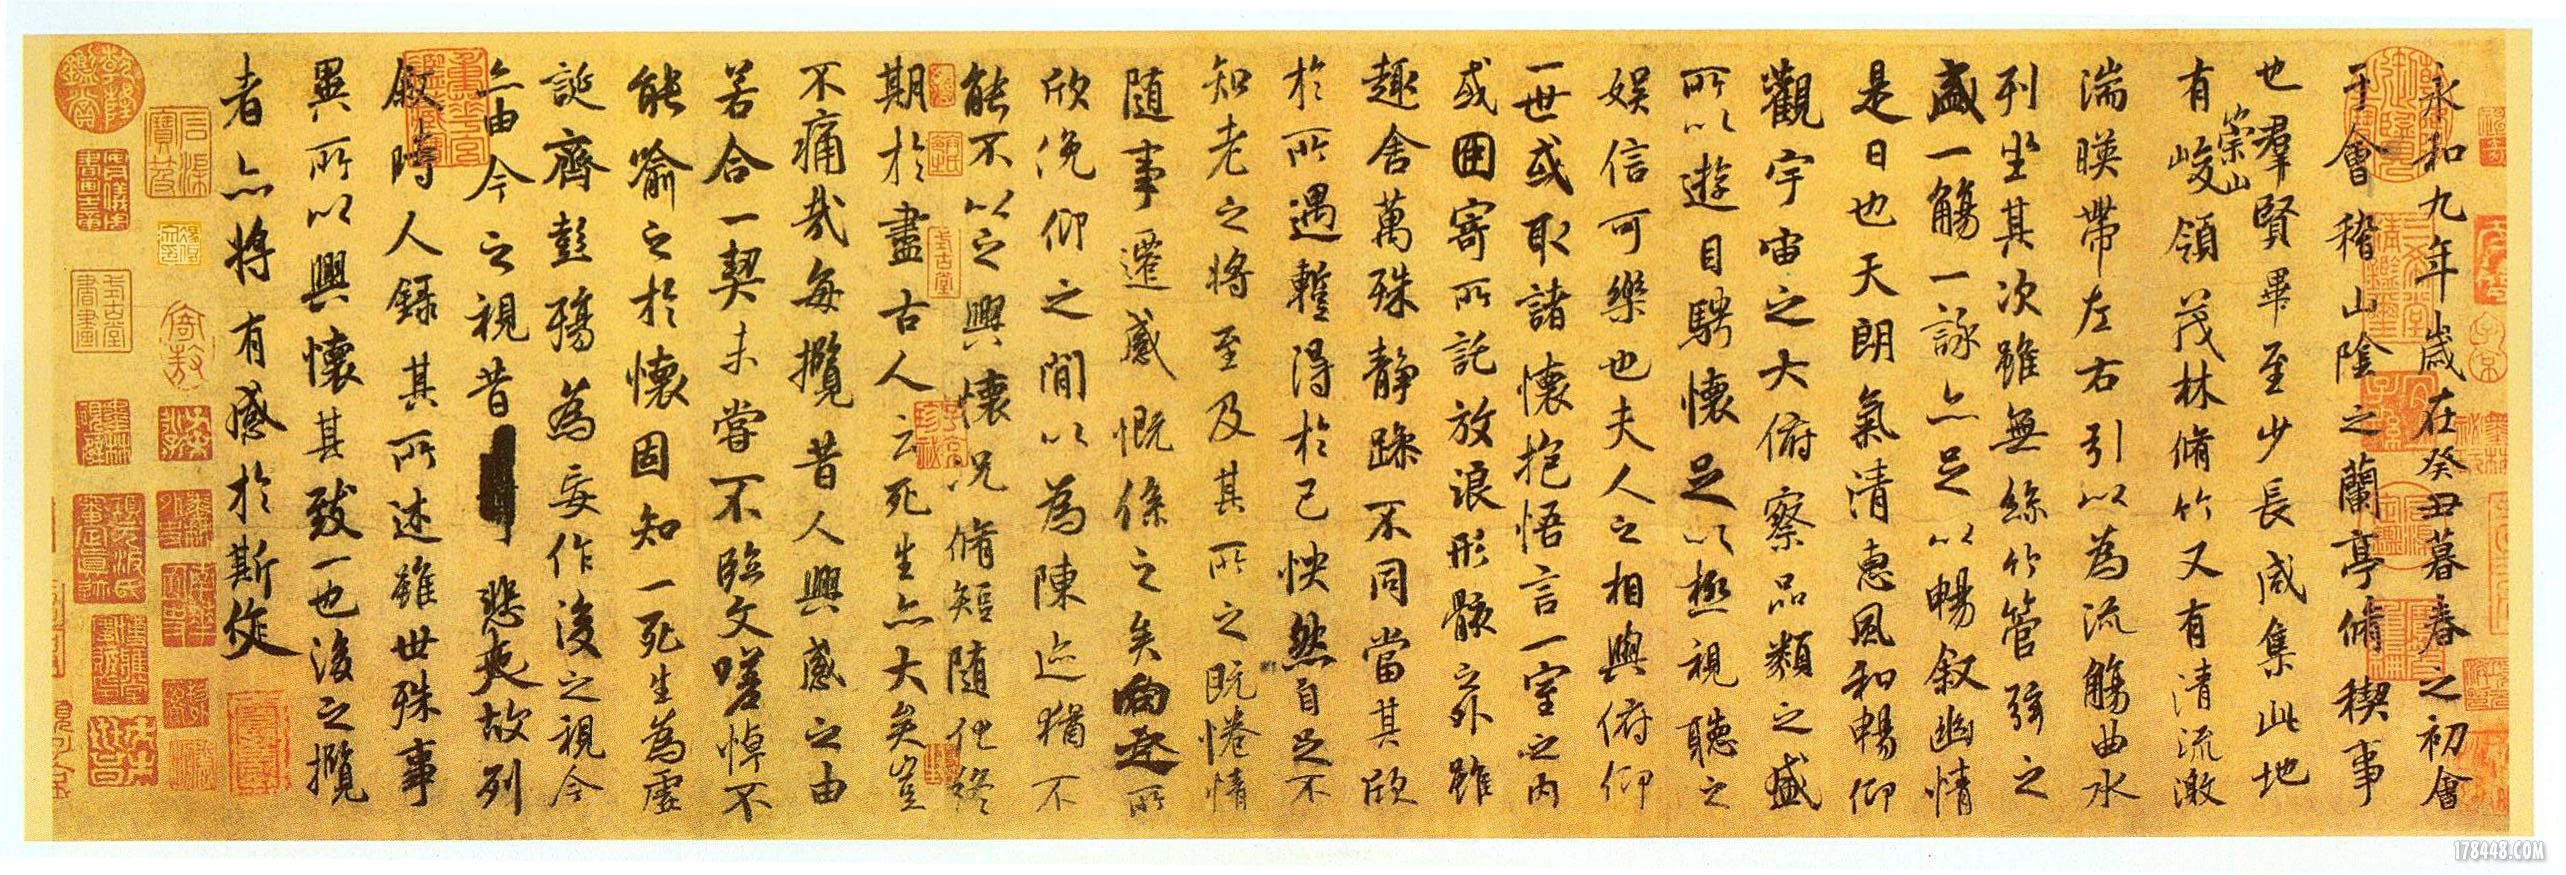 永和九年歲在癸丑暮春之初會
于會稽山陰之蘭亭脩稧事
也羣賢畢至少長咸集此地
有崇山峻領茂林脩竹又有清流激
湍暎帶左右引以為流觴曲水
列坐其次雖無絲竹管弦之
盛一觴一詠亦足以暢敘幽情
是日也天朗氣清惠風和暢仰
觀宇宙之大俯察品類之盛
所以遊目騁懷足以極視聽之
娛信可樂也夫人之相與俯仰
一世或取諸懷抱悟言一室之內
或因寄所託放浪形骸之外雖
趣舍萬殊靜躁不同當其欣
於所遇蹔得於己怏然自足不
知老之將至及其所之既惓情
隨事遷感慨係之矣向之所
欣俛仰之閒以為陳迹猶不
能不以之興懷況脩短隨化終
期於盡古人云死生亦大矣豈
不痛哉每攬昔人興感之由
若合一契未嘗不臨文嗟悼不
能喻之於懷固知一死生為虛
誕齊彭殤為妄作後之視今
亦由今之視昔悲夫故列
敘時人錄其所述雖世殊事
異所以興懷其致一也後之攬
者亦將有感於斯文
178448.COM